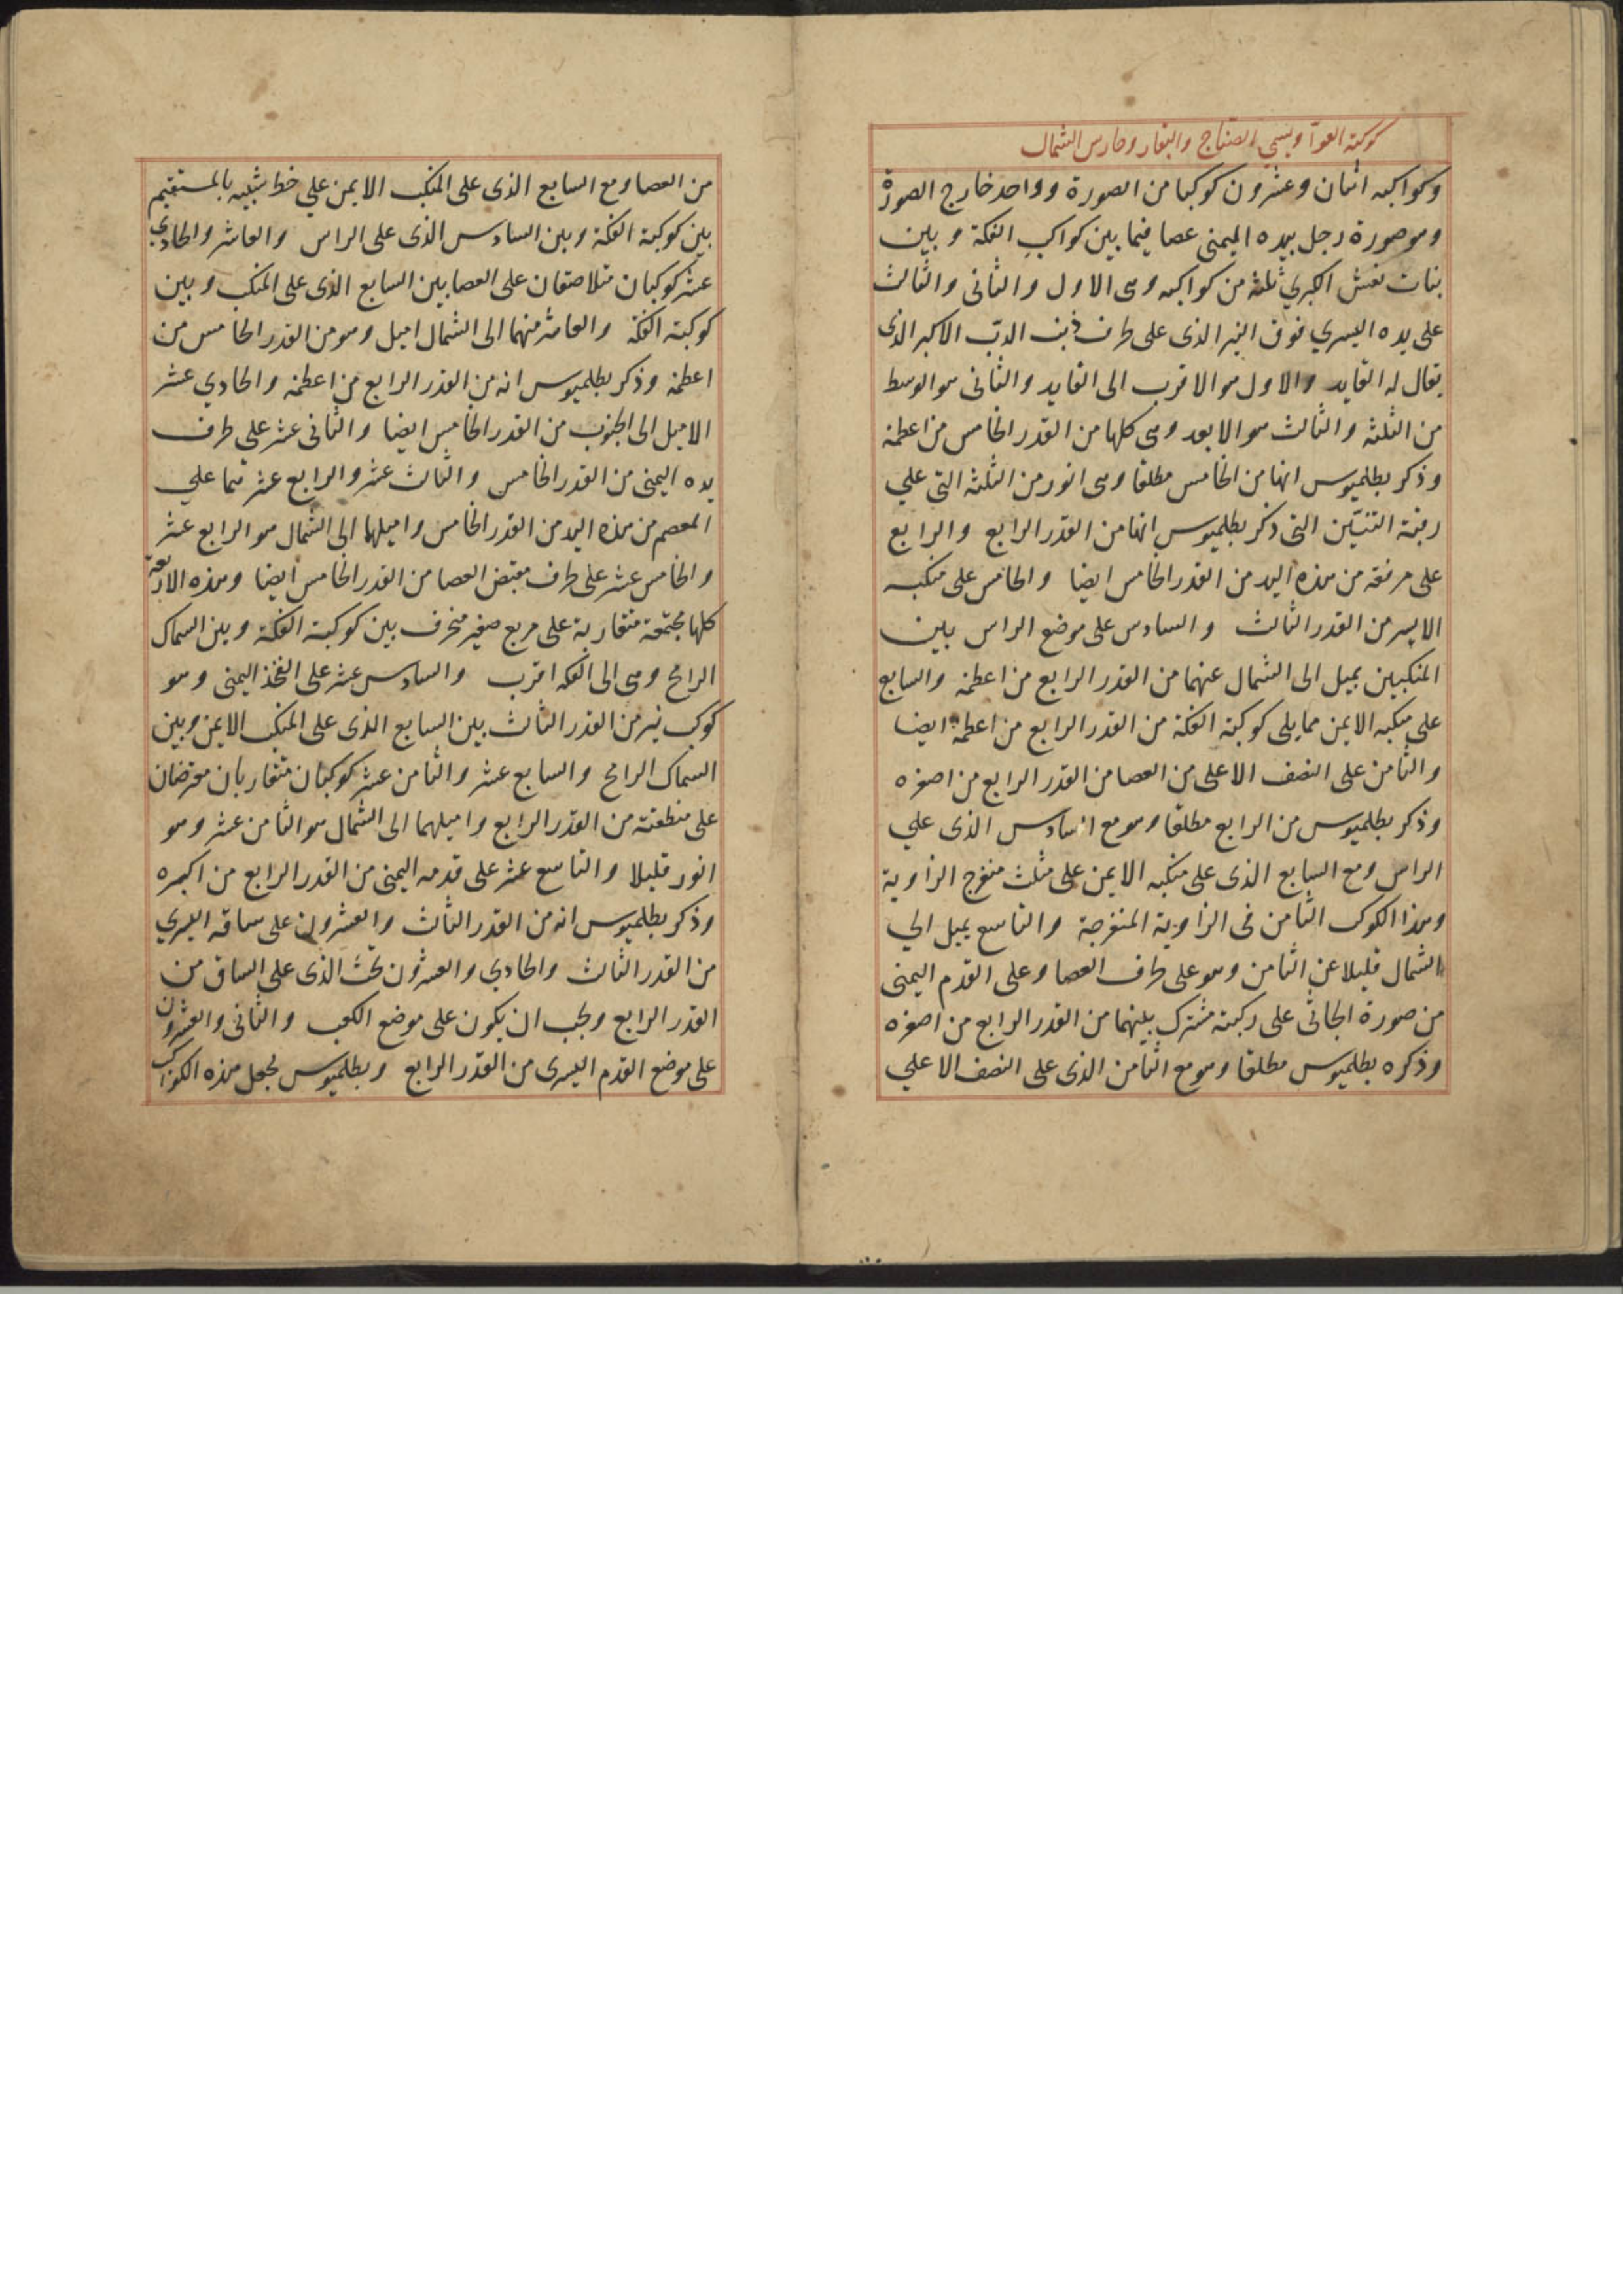 كوكبة العوا ويسمي الصناج والبقار وحارس الشمال
وكواكبه اثنان وعشرون كوكبا من الصورة وواحد خارج الصورة
وهو صورة رجل بيده اليمنى عصا فيما بين كواكب الفكة وبين
بنات نعش الكبري ثلثة من كواكبه وهى الاول والثانى والثالث
على يده اليسري فوق النير الذى على طرف ذنب الدب الاكبر الذى
يقال له القايد والاول هو الاقرب الى القايد والثانى هو الوسط
من الثلثة والثالث هو الابعد وهى كلها من القدر الخامس من اعظمه
وذكر بطلميوس انها من الخامس مطلقا وهى انور من الثلثة التي علي
رقبة التنين التى ذكر بطلميوس انها من القدر الرابع والرابع
على مرفقه من هذه اليد من القدر الخامس ايضا والخامس على منكبه
الايسر من القدر الثالث والسادس على موضع الراس بين
المنكبين يميل الى الشمال عنهما من القدر الرابع من اعظمه والسابع
على منكبه الايمن مما يلى كوكبة الفكة من القدر الرابع من اعظمه ايضا
والثامن على النصف الاعلى من العصا من القدر الرابع من اصغره
وذكر بطلميوس من الرابع مطلقا وهو مع السادس الذى علي
الراس ومع السابع الذى على منكبه الايمن على مثلث منفرج الزاوية
وهذا الكوكب الثامن فى الزاوية المنفرجة والتاسع يميل الي
الشمال قليلا عن الثامن وهو على طرف العصا وعلى القدم اليمنى
من صورة الجاثى على ركبته مشترك بينهما من القدر الرابع من اصغره
وذكره بطلميوس مطلقا وهو مع الثامن الذى على النصف الاعلي
من العصا ومع السابع الذى على المنكب الايمن علي خط شبيه بالمستقيم
بين كوكبة الفكة وبين السادس الذى على الراس والعاشر والحادي
عشر كوكبان متلاصقان على العصا بين السابع الذى على المنكب وبين
كوكبة الفكة والعاشر منهما الى الشمال اميل وهو من القدر الخامس من
اعظمه وذكر بطلميوس انه من القدر الرابع من اعظمه والحادي عشر
الاميل الى الجنوب من القدر الخامس ايضا والثانى عشر على طرف
يده اليمنى من القدر الخامس والثالث عشر والرابع عشر هما علي
المعصم من هذه اليد من القدر الخامس واميلهما الى الشمال هو الرابع عشر
والخامس عشر على طرف مقبض العصا من القدر الخامس ايضا وهذه الاربعة
كلها مجتمعة متقاربة على مربع صغير منحرف بين كوكبة الفكة وبين السماك
الرامح وهى الى الفكه اقرب والسادس عشر على الفخذ اليمنى وهو
كوكب نير من القدر الثالث بين السابع الذى على المنكب الايمن وبين
السماك الرامح والسابع عشر والثامن عشر كوكبان متقاربان معترضان
على منطقته من القدر الرابع واميلهما الى الشمال هو الثامن عشر وهو
انور قليلا والتاسع عشر على قدمه اليمنى من القدر الرابع من اكبره
وذكر بطلميوس انه من القدر الثالث والعشرون على ساقه اليسري
من القدر الثالث والحادي والعشرون تحت الذى على الساق من
القدر الرابع ويجب ان يكون على موضع الكعب والثانى والعشرون
على موضع القدم اليسرى من القدر الرابع وبطلميوس يجعل هذه الكواكب